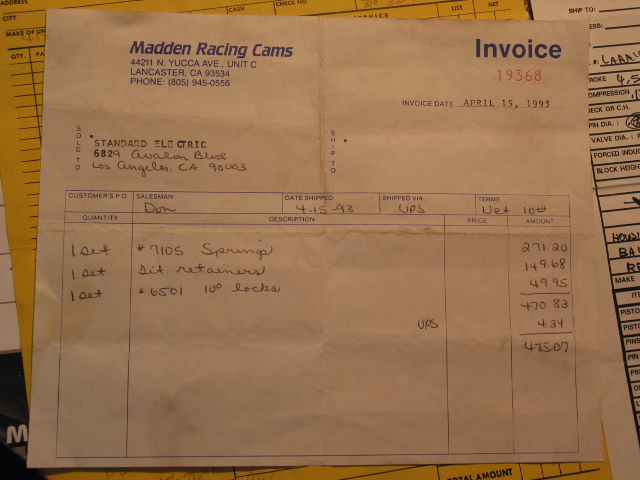 ADDRESS
CASH
CHECK NO.
LIST
NET
SHIP TO:
MAKE OF
QTY.
Madden Racing Cams
44211 N. YUCCA AVE., UNIT C
LANCASTER, CA 93534
PHONE: (805) 945-0556
Invoice
19368
INVOICE DATE APRIL 15, 1993
SOLD TO
STANDARD ELECTRIC
6829 Avalon Blvd
Los Angeles, CA 90003
SHIP TO
CUSTOMER'S P.O. SALESMAN DATE SHIPPED SHIPPED VIA TERMS
Don 4-15-93 UPS Net 10th
QUANTITY DESCRIPTION PRICE AMOUNT
1 Set #7105 Springs 271.20
1 Set Sit. retainers 149.68
1 Set #6501 10° locks 49.95
470.83
UPS 4.24
475.07
COMPRESSION
CHECK OR C.H.
PIN DIA.:
VALVE DIA.:
FORCED INDUC
BLOCK HEIGHT
MAKE
PISTON
PISTON
PIN
PINS
TOTAL AMOUNT